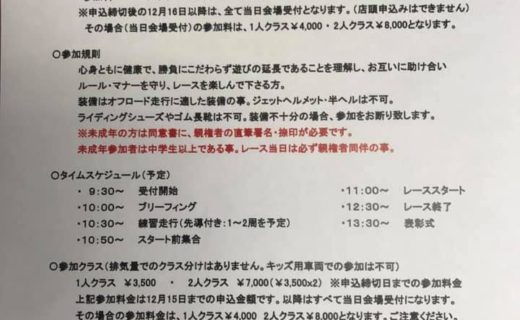 ※申込締切後の12月16日以降は、全て当日会場受付となります。(店頭申込みはできません)
その場合(当日会場受付)の参加料は、1人クラス¥4,000・2人クラス¥8,000となります。
○参加規則
心身ともに健康で、勝負にこだわらず遊びの延長であることを理解し、お互いに助け合い
ルール・マナーを守り、レースを楽しんで下さる方。
装備はオフロード走行に適した装備の事。ジェットヘルメット・半ヘルは不可。
ライディングシューズやゴム長靴は不可。装備不十分の場合、参加をお断り致します。
※未成年の方は同意書に、親権者の直筆署名・捺印が必要です。
未成年参加者は中学生以上である事。レース当日は必ず親権者同伴の事。
○タイムスケジュール(予定)
・ 9:30~ 受付開始 ・11:00~ レーススタート
・10:00~ ブリーフィング ・12:30~ レース終了
・10:30~ 練習走行(先導付き:1~2周を予定) ・13:30~ 表彰式
・10:50~ スタート前集合
○参加クラス(排気量でのクラス分けはありません。キッズ用車両での参加は不可)
1人クラス ¥3,500 ・ 2人クラス ¥7,000(¥3,500x2) ※申込締切日までの参加料金
上記参加料金は12月15日までの申込金額です。以降はすべて当日会場受付になります。
その場合の参加料金は、1人クラス¥4,000 2人クラス¥8,000になります。ご注意ください。